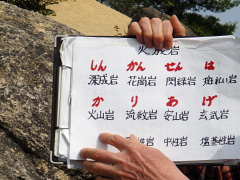 火成岩
しんかんせんは
深成岩 花崗岩 閃緑岩 斑れい岩
かりあげ
火山岩 流紋岩 安山岩 玄武岩
性岩 中性岩 塩基性岩